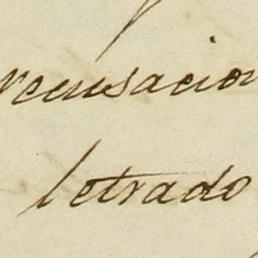 recusacion
letrado